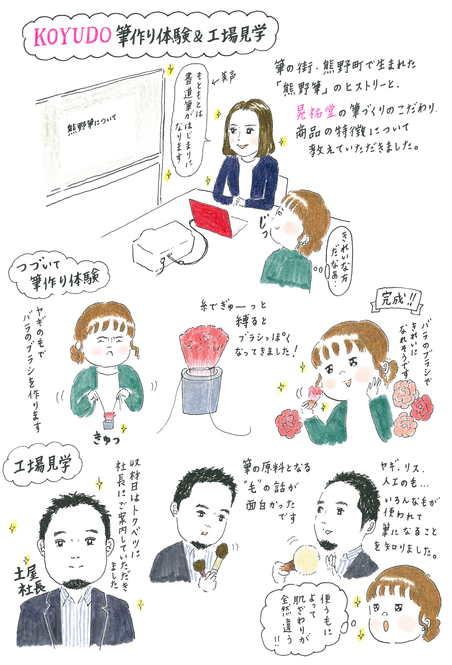 KOYUDO 筆作り体験&工場見学
筆の街・熊野町で生まれた
「熊野筆」のヒストリーと、
晃祐堂の筆づくりのこだわり、
商品の特徴について
教えていただきました。
熊野筆について
もともとは
書道筆がはじまりに
なります
←美声
じっ
きれいな方
だなあ…
つづいて
筆作り体験
ヤギのもで
バラのブラシを作ります
きゅっ
糸でぎゅーっと
縛ると
ブラシっぽく
なってきました!
完成!!
バラのブラシで
きれいに
なれそうです
工場見学
取材日はトクベツに
社長にご案内していただき
ました
土屋
社長
筆の原料となる
"毛"の話が
面白かった
です
ヤギ、リス、
人工のも…
いろんなもが
使われて
筆になること
を知りました。
使うもに
よって
肌ざわりが
全然違う
!!